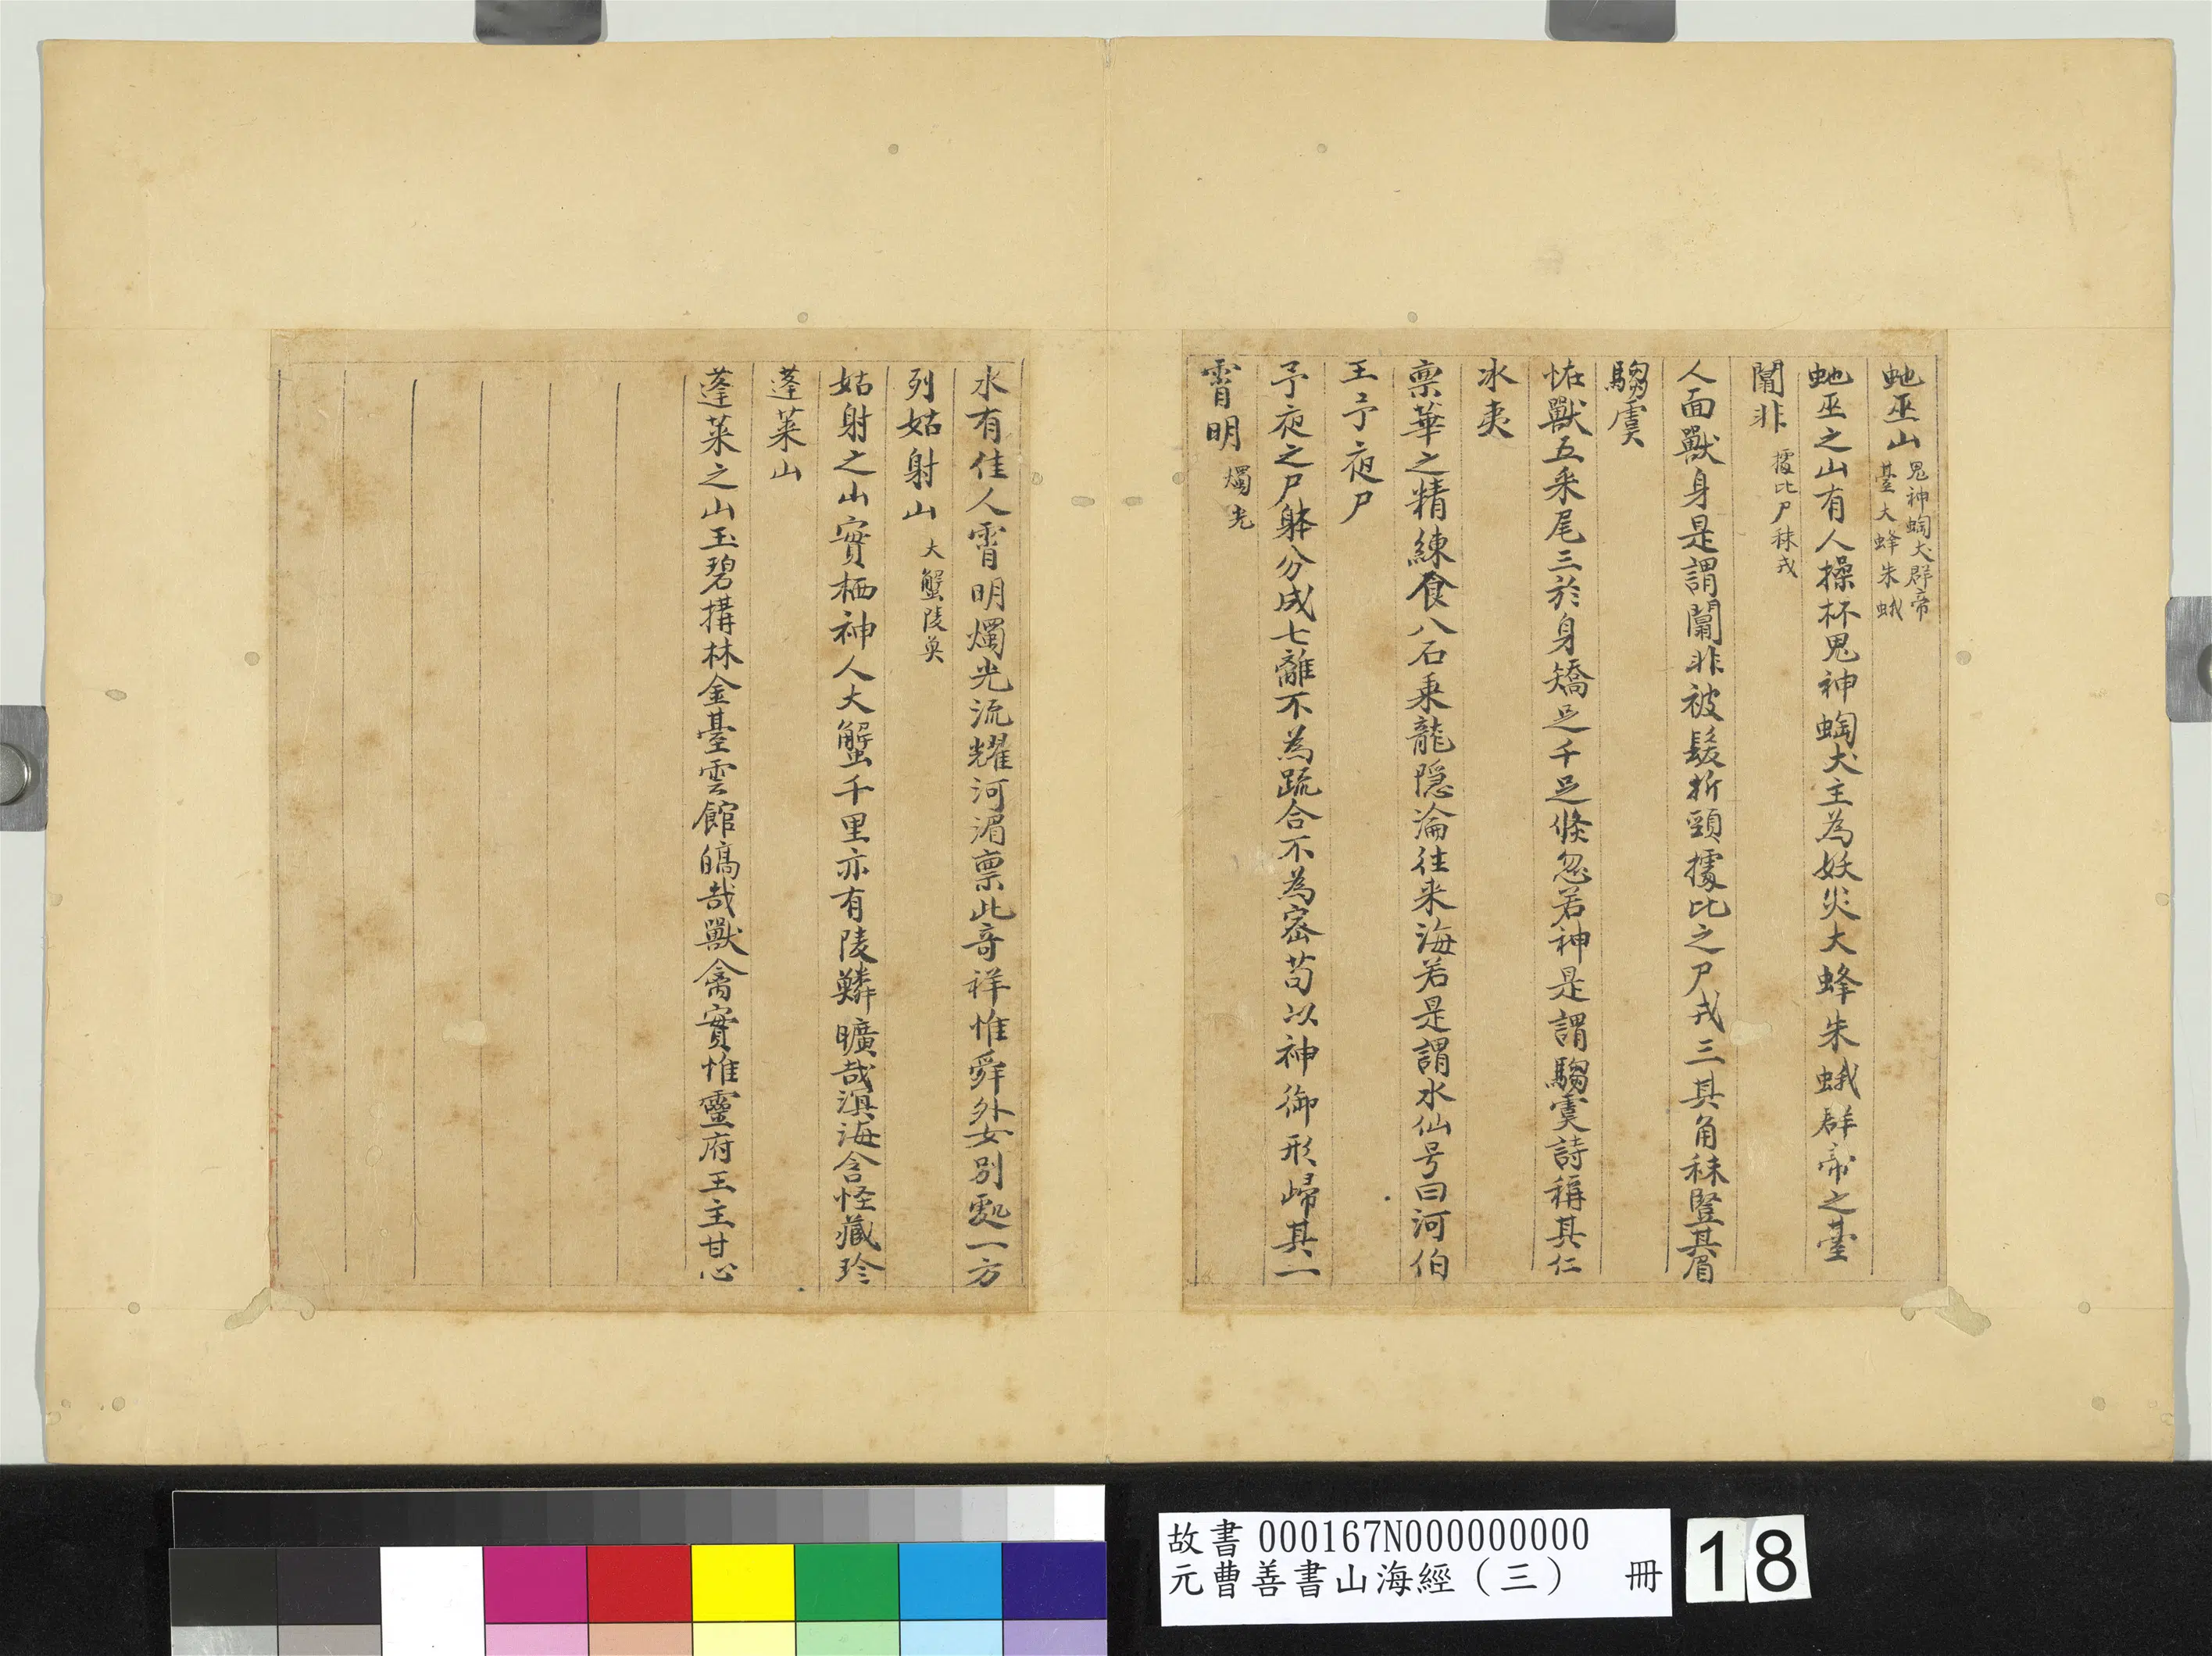 虵巫山 鬼神蜪犬群帝
臺大蜂朱蛾
虵巫之山有人操杯鬼神蜪犬主為妖災大蜂朱蛾群帝之臺
闒非 㩀比尸袜戎
人面獸身是謂闒非被髮折頸㩀比之尸戎三其角袜豎其眉
騶虞
恠獸五采尾三於身矯足千足倐忽若神是謂騶虞詩稱其仁
冰夷
禀華之精練食八石乘龍隠淪往来海若是謂水仙号曰河伯
王子夜尸
子夜之尸躰分成七離不為疏合不為宻苟以神御形歸其一
霄明 燭光
水有佳人霄明燭光流耀河湄禀此竒祥惟舜外女別處一方
列姑射山 大蟹陵魚
姑射之山實栖神人大蟹千里亦有陵鱗曠哉溟海含怪藏珍
蓬萊山
蓬萊之山玉碧搆林金臺雲館皜哉獸禽實惟靈府王主甘心
故書 000167N000000000
元曹善書山海經（三） 冊
18